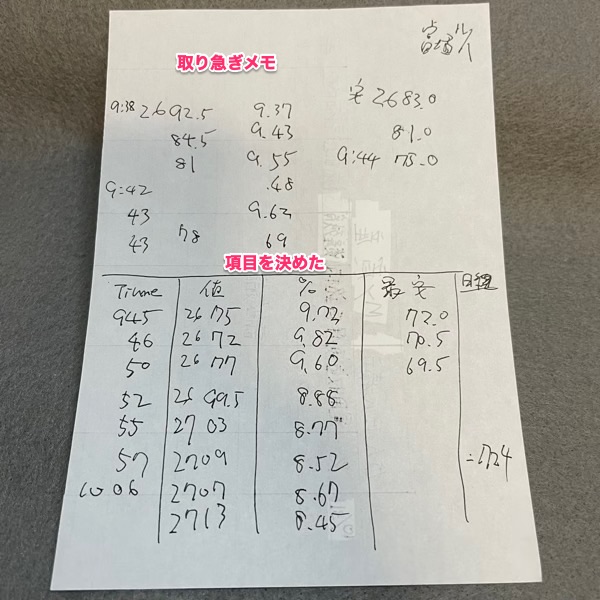 取り急ぎメモ
9:38 2692.5 9.37 2683.0
84.5 9.43 81.0
81 9.55 9:44 78.0
9:42 .48
43 9.62
43 78 69
項目を決めた
Time 値 % 最
945 2675 9.72 72.0
46 2672 9.82 70.5
50 2677 9.60 69.5
52 2699.5 8.88
55 2703 8.77
57 2709 8.52
1006 2707 8.67
2713 8.45